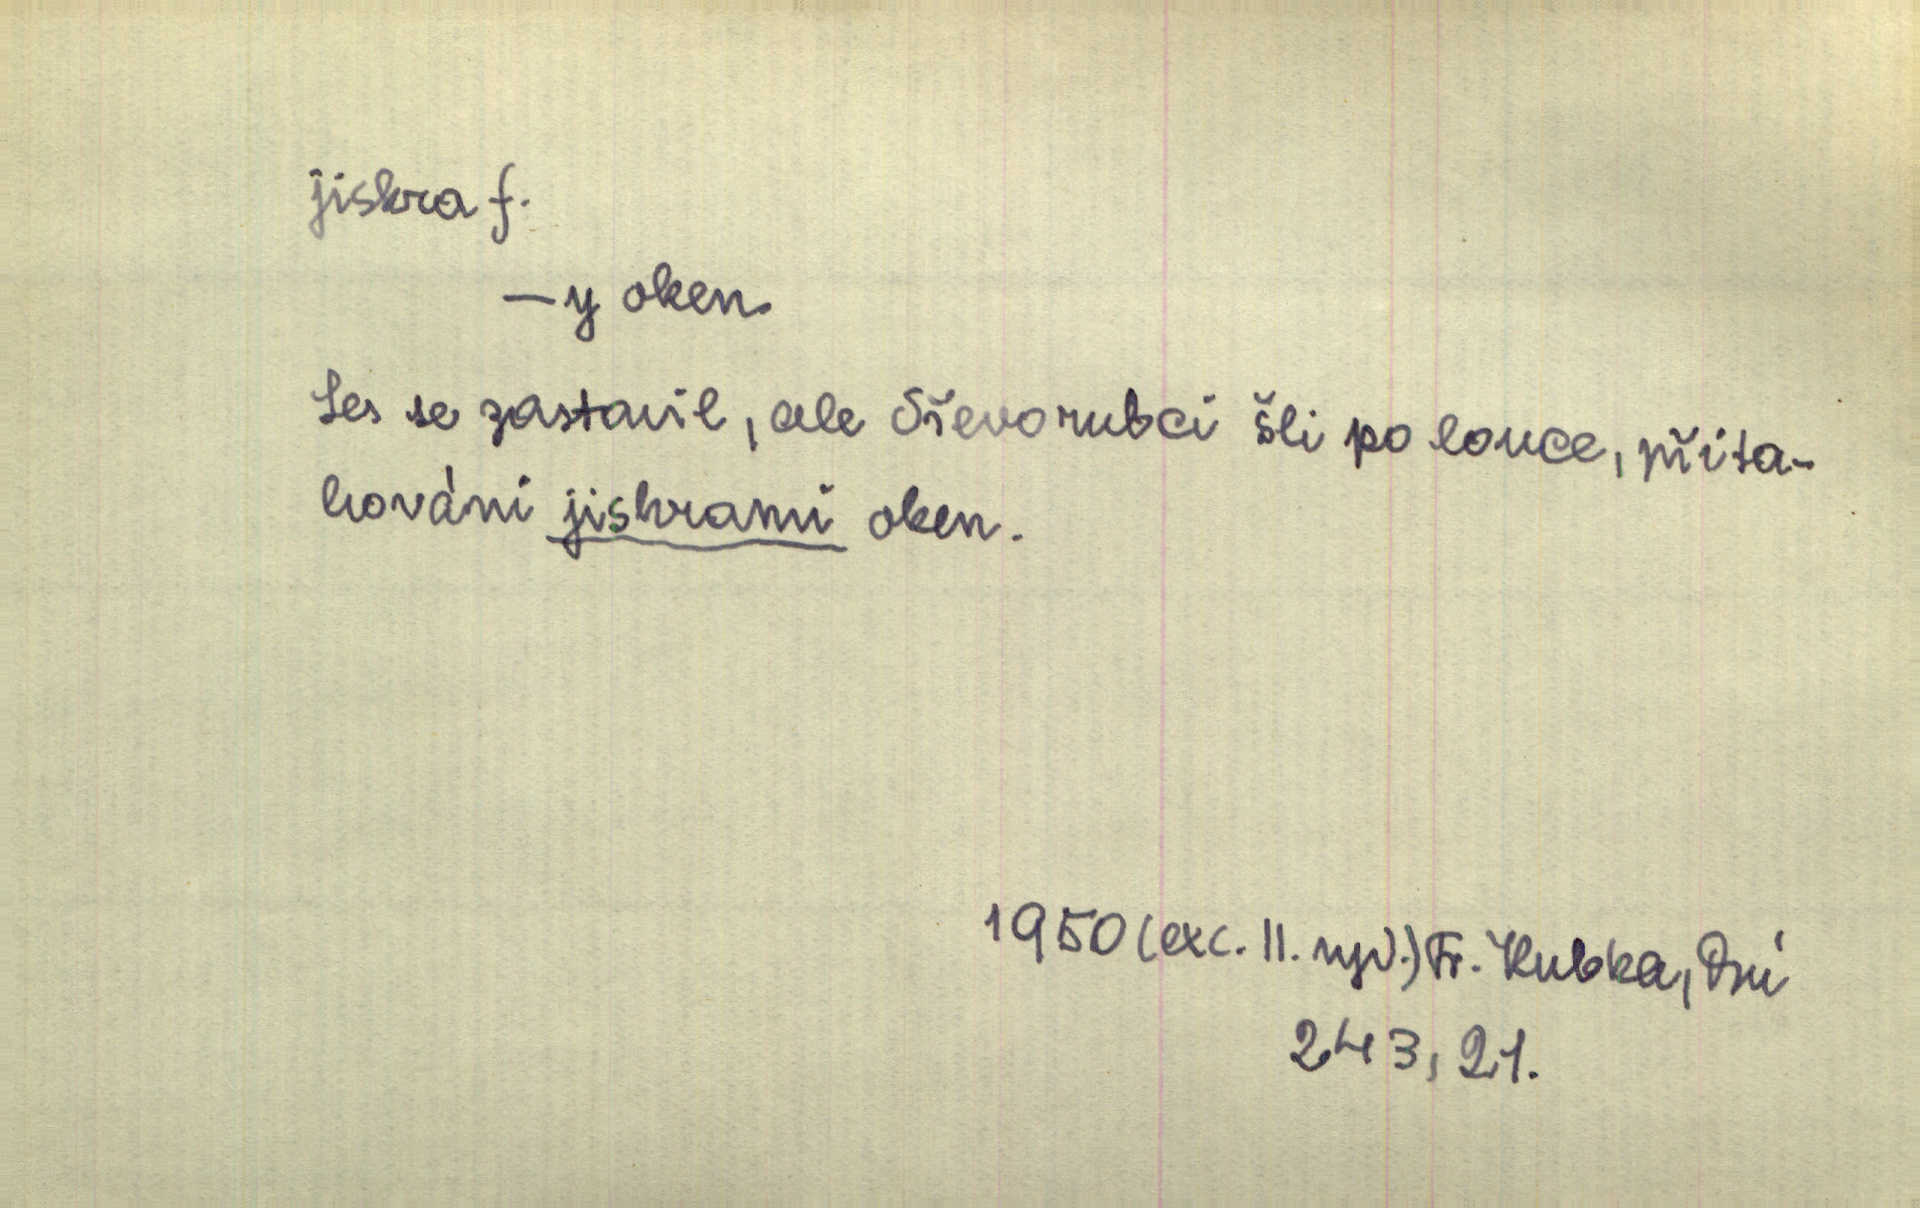 jiskra f.
—y oken.
Les se zastavil, ale dřevorubci šli po louce, přita-
hováni jiskrami oken.
1950 (exc. II. vyd.) Fr. Kubka, Dni
243, 21.